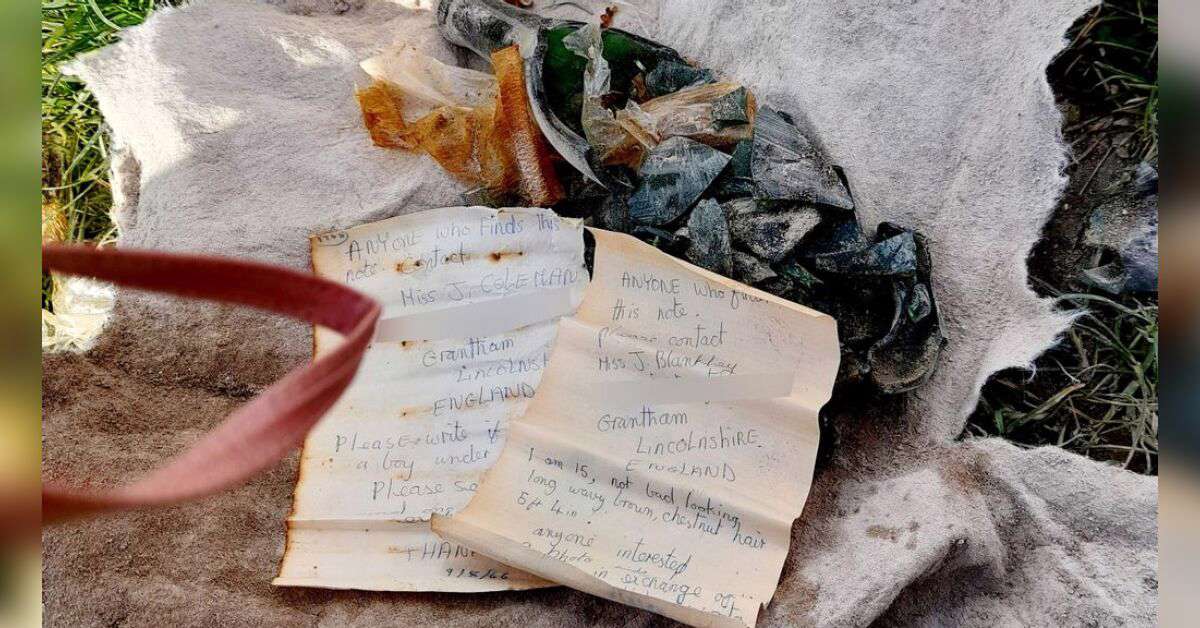 ANYONE who finds this
note. Contact
Miss J. COLEMAN
Grantham
LINCOLNSH
ENGLAND
Please write if
a boy under
Please se
THAN
9/5/66
ANYONE who
this note.
please contact
Miss J.
Grantham
LINCOLNSHIRE.
ENGLAND
I am 15, not bad looking,
long wavy brown, chestnut hair
5ft 4in.
anyone interested
photo in exchange of